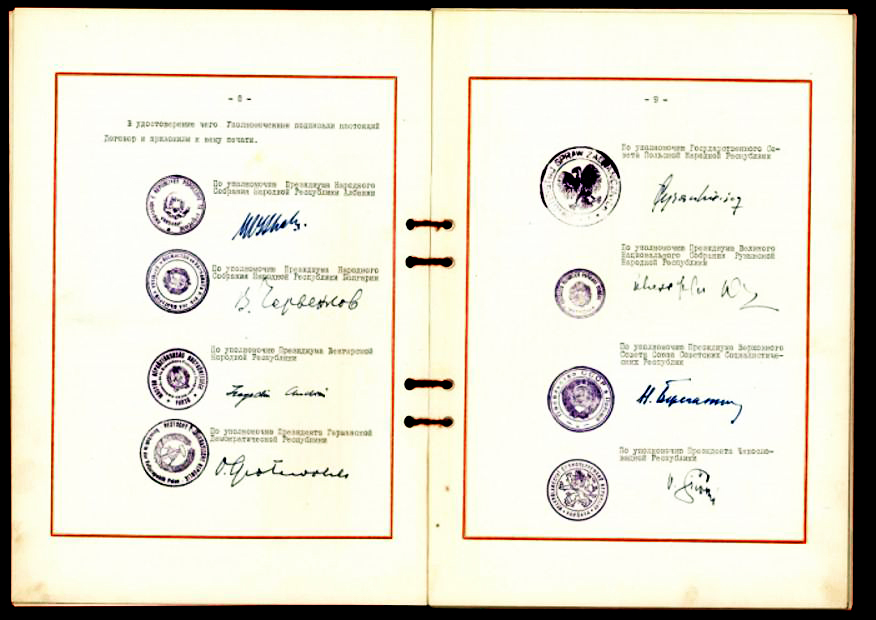 - 8 -
В удостоверение чего Уполномоченные подписали настоящий
Договор и приложили к нему печати.
По уполномочию Президиума Народного
Собрания Народной Республики Албании
По уполномочию Президиума Народного
Собрания Народной Республики Болгарии
В. Червенков
По уполномочию Президиума Венгерской
Народной Республики
По уполномочию Президента Германской
Демократической Республики
O. Grotewohl
- 9 -
По уполномочию Государственного Со-
вета Польской Народной Республики
По уполномочию Президиума Великого
Национального Собрания Румынской
Народной Республики
По уполномочию Президиума Верховного
Совета Союза Советских Социалистичес-
ких Республик
Н. Булганин
По уполномочию Президента Чехосло-
вацкой Республики